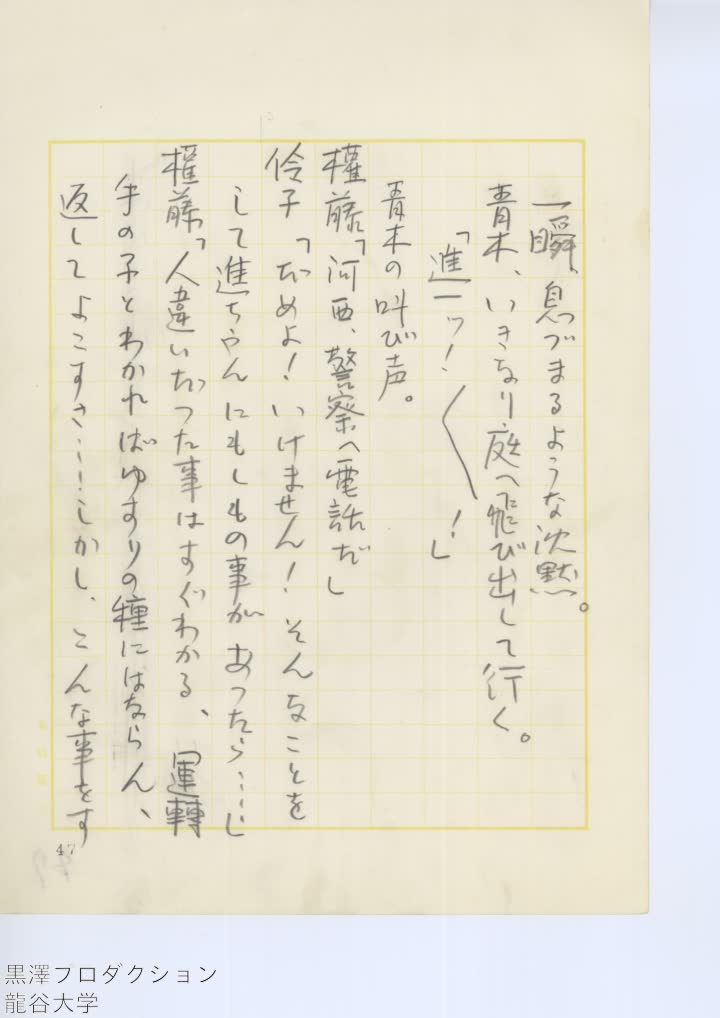 一瞬、息づまるような沈黙。
青木、いきなり庭へ飛び出して行く。
「進一ッ！〱！」
青木の叫び声。
権藤「河西、警察へ電話だ」
伶子「だめよ！いけません！そんなことを
して進ちゃんにもしもの事があったら……」
権藤「人違いだった事はすぐわかる、運轉
手の子とわかればゆすりの種にはならん、
返してよこすさ……！しかし、こんな事をす
47
黒澤プロダクション
龍谷大学